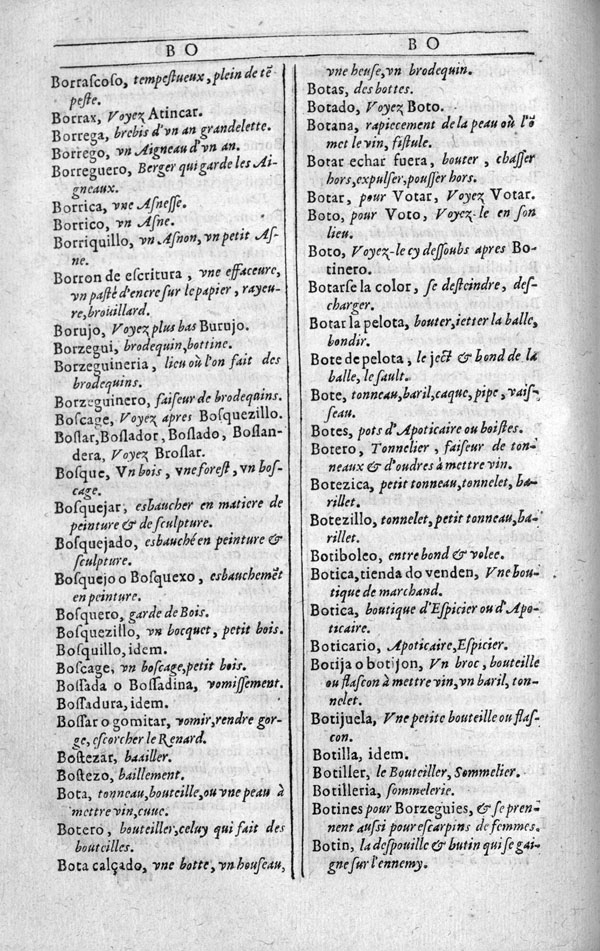 BO
Borrascoso, tempestueux, plein de tẽ
peste.
Borrax, Voyez Atincar.
Borrega, brebis d'vn an grandelette.
Borrego, vn Aigneau d'vn an.
Borreguero, Berger qui garde les Ai-
gneaux.
Borrica, vne Asnesse.
Borrico, vn Asne.
Borriquillo, vn Asnon, vn petit As-
ne.
Borron de escritura, vne effaceure,
vn pasté d'encre sur le papier, rayeu-
re, brouillard.
Borujo, Voyez plus bas Burujo.
Borzegui, brodequin, bottine.
Borzeguineria, lieu où l'on fait des
brodequins.
Borzeguinero, faiseur de brodequins.
Boscage, Voyez apres Bosquezillo.
Boslar, Boslador, Boslado, Boslan-
dera, Voyez Broslar.
Bosque, Vn bois, vne forest, vn bos-
cage.
Bosquejar, esbaucher en matiere de
peinture & de sculpture.
Bosquejado, esbauché en peinture &
sculpture.
Bosquejo o Bosquexo, esbauchemẽt
en peinture.
Bosquero, garde de Bois.
Bosquezillo, vn bocquet, petit bois.
Bosquillo, idem.
Boscage, vn boscage, petit bois.
Bossada o Bossadina, vomissement.
Bossadura, idem.
Bossar o gomitar, vomir, rendre gor-
ge, escorcher le Renard.
Bostezar, baailler.
Bostezo, baillement.
Bota, tonneau, bouteille, ou vne peau à
mettre vin, cuue.
Botero, bouteiller, celuy qui fait des
bouteilles.
Bota calçado, vne botte, vn houseau,
BO
vne heuse, vn brodequin.
Botas, des bottes.
Botado, Voyez Boto.
Botana, rapiecement de la peau où l'õ
met le vin, fistule.
Botar echar fuera, bouter, chasser
hors, expulser, pousser hors.
Botar, pour Votar, Voyez Votar.
Boto, pour Voto, Voyez-le en son
lieu.
Boto, Voyez-le cy dessoubs apres Bo-
tinero.
Botarse la color, se desteindre, des-
charger.
Botar la pelota, bouter, ietter la balle,
bondir.
Bote de pelota, le ject & bond de la
balle, le sault.
Bote, tonneau, baril, caque, pipe, vais-
seau.
Botes, pots d'Apoticaire ou boistes.
Botero, Tonnelier, faiseur de ton-
neaux & d'oudres à mettre vin.
Botezica, petit tonneau, tonnelet, ba-
rillet.
Botezillo, tonnelet, petit tonneau, ba-
rillet.
Botiboleo, entre bond & volee.
Botica, tienda do venden, Vne bou-
tique de marchand.
Botica, boutique d'Espicier ou d'Apo-
ticaire.
Boticario, Apoticaire, Espicier.
Botija o botijon, Vn broc, bouteille
ou flascon à mettre vin, vn baril, ton-
nelet.
Botijuela, Vne petite bouteille ou flas-
con.
Botilla, idem.
Botiller, le Bouteiller, Sommelier.
Botilleria, sommelerie.
Botines pour Borzeguies, & se pren-
nent aussi pour escarpins de femmes.
Botin, la despouille & butin qui se gai-
gne sur l'ennemy.